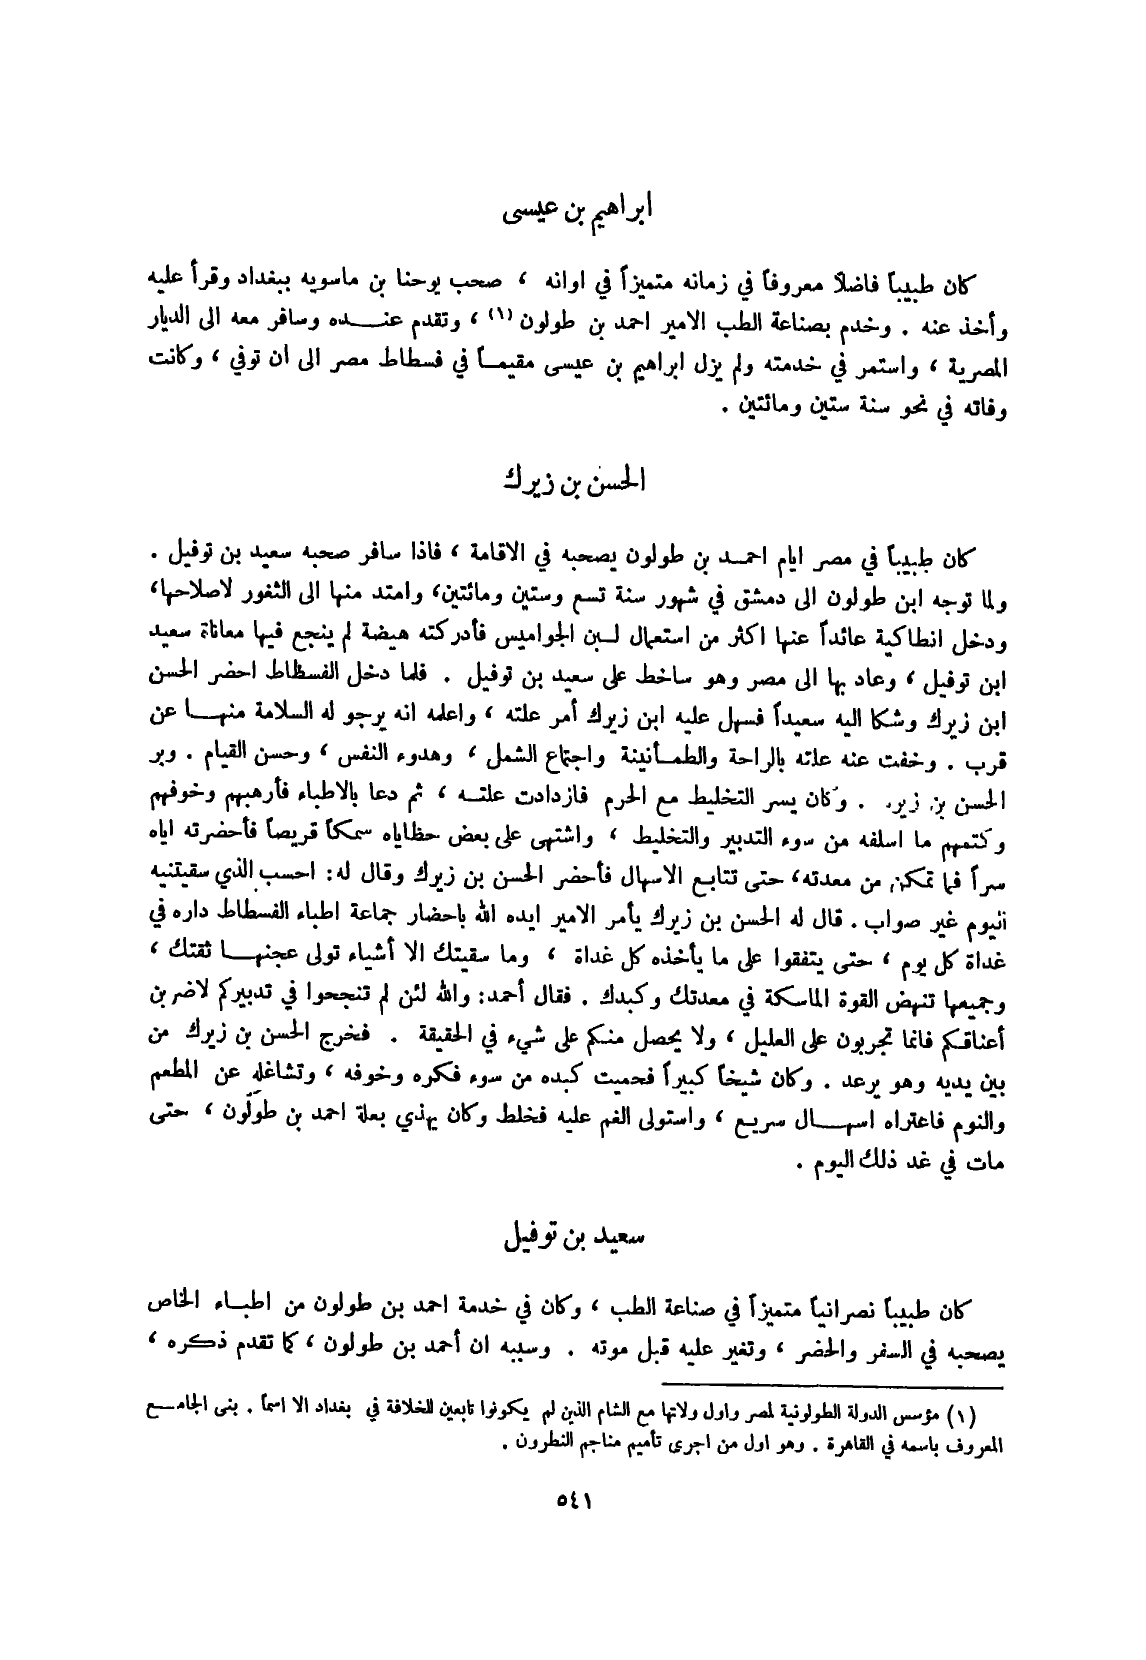 ابراهيم بن عيسى
كان طبيباً فاضلاً معروفاً في زمانه متميزاً في اوانه ، صحب يوحنا بن ماسويه ببغداد وقرأ عليه
وأخذ عنه . وخدم بصناعة الطب الامير احمد بن طولون (١) ، وتقدم عنده وسافر معه الى الديار
المصرية ، واستمر في خدمته ولم يزل ابراهيم بن عيسى مقيماً في فسطاط مصر الى ان توفي ، وكانت
وفاته في نحو سنة ستين ومائتين .
الحسن بن زيرك
كان طبيباً في مصر ايام احمد بن طولون يصحبه في الاقامة ، فاذا سافر صحبه سعيد بن توفيل .
ولما توجه ابن طولون الى دمشق في شهور سنة تسع وستين ومائتين، وامتد منها الى الثغور لاصلاحها،
ودخل انطاكية عائداً عنها اكثر من استعمال لبن الجواميس فأدركته هيضة لم ينجع فيها معاناة سعيد
ابن توفيل ، وعاد بها الى مصر وهو ساخط على سعيد بن توفيل . فلما دخل الفسطاط احضر الحسن
ابن زيرك وشكا اليه سعيداً فسهل عليه ابن زيرك أمر علته ، واعلمه انه يرجو له السلامة منها عن
قرب . وخفت عنه علته بالراحة والطمأنينة واجتماع الشمل ، وهدوء النفس ، وحسن القيام . وبر
الحسن بن زير . وكان يسر التخليط مع الحرم فازدادت علته ، ثم دعا بالاطباء فأرهبهم وخوفهم
وكتمهم ما اسلفه من سوء التدبير والتخليط ، واشتهى على بعض حظاياه سمكاً قريصاً فأحضرته اياه
سراً فما تمكن من معدته، حتى تتابع الاسهال فأحضر الحسن بن زيرك وقال له: احسب الذي سقيتنيه
اليوم غير صواب . قال له الحسن بن زيرك يأمر الامير ايده الله باحضار جماعة اطباء الفسطاط داره في
غداة كل يوم ، حتى يتفقوا على ما يأخذه كل غداة ، وما سقيتك الا أشياء تولى عجنها ثقتك ،
وجميعها تنهض القوة الماسكة في معدتك وكبدك . فقال أحمد: والله لئن لم تنجحوا في تدبيركم لاضربن
أعناقكم فانما تجربون على العليل ، ولا يحصل منكم على شيء في الحقيقة . فخرج الحسن بن زيرك من
بين يديه وهو يرعد . وكان شيخاً كبيراً فحميت كبده من سوء فكره وخوفه ، وتشاغله عن المطعم
والنوم فاعتراه اسهال سريع ، واستولى الغم عليه فخلط وكان يهذي بعلة احمد بن طولون ، حتى
مات في غد ذلك اليوم .
سعيد بن توفيل
كان طبيباً نصرانياً متميزاً في صناعة الطب ، وكان في خدمة احمد بن طولون من اطباء الخاص
يصحبه في السفر والحضر ، وتغير عليه قبل موته . وسببه ان أحمد بن طولون ، كما تقدم ذكره ،
(١) مؤسس الدولة الطولونية لمصر واول ولاتها مع الشام الذين لم يكونوا تابعين للخلافة في بغداد الا اسماً . بنى الجامع
المعروف باسمه في القاهرة . وهو اول من اجرى تأميم مناجم النطرون .
٥٤١